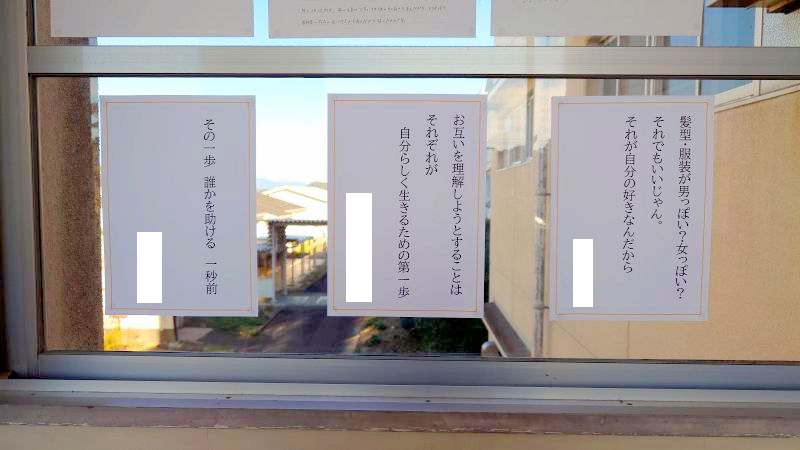 髪型・服装が男っぽい?女っぽい?
それでもいいじゃん。
それが自分の好きなんだから
お互いを理解しようとすることは
それぞれが
自分らしく生きるための第一歩
その一歩 誰かを助ける 一秒前